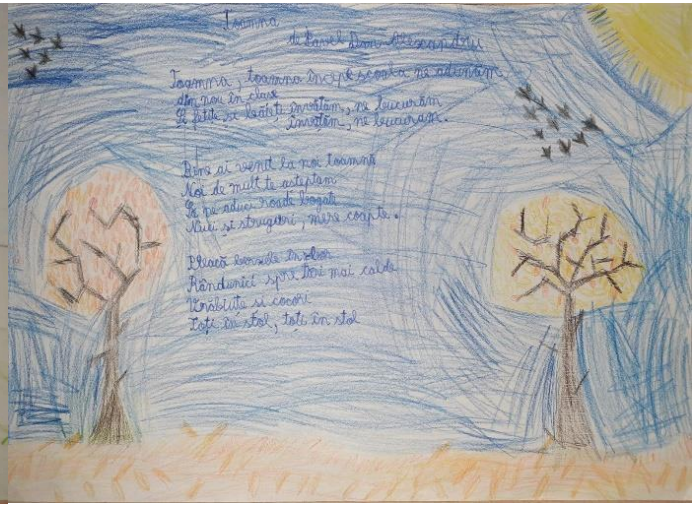 Toamna
de Pavel Dim. Alexandru
Toamna, toamna începe școala ne adunăm
din nou în clase
Și fetițe și băieți învățăm, ne bucurăm
învățăm, ne bucurăm.
Bine ai venit la noi toamnă
Noi de mult te așteptam
Să ne aduci roade bogate
Nuci și struguri, mere coapte.
Pleacă berzele în zbor
Rândunici spre țări mai calde
Vrăbiuțe și cocori
Toți în stol, toți în stol